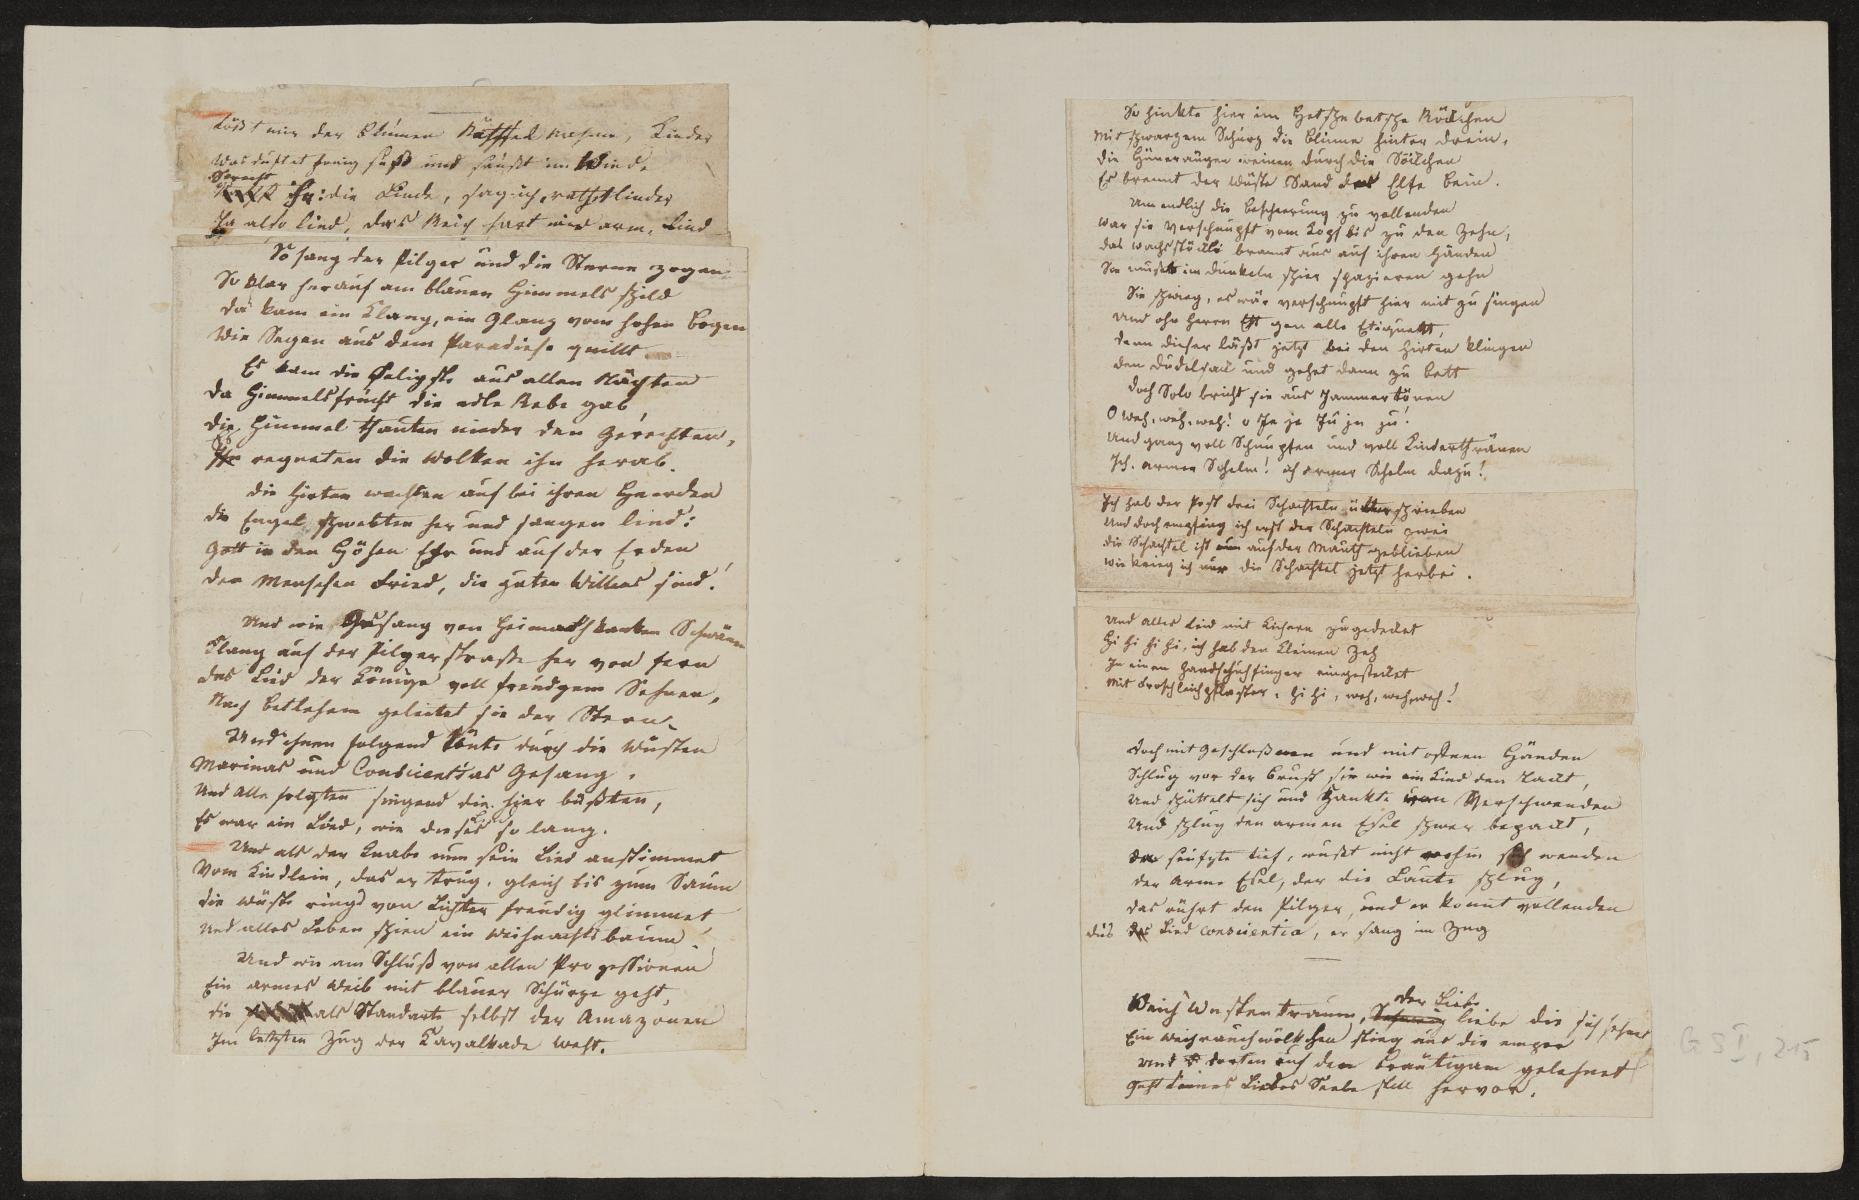 Läßt mir der Blumen Räthsel nahme, Kinder
Was duftet honig süß und säußt im Wind,
Sprecht
Ihr: die Linde, sag ich, rathet linder
Ja also lind, das Reich hart wird arm, Lind
So sang der Pilger und die Sterne zogen
So klar herauf am blauen Himmels schild
Da kam ein Klang, ein Glanz vom hohen Bogen
Wie Segen aus dem Paradiese quillt.
Es kam die Seligste aus allen Nächten
Da Himmelsfrucht die edle Rebe gab,
Die Himmel thauten nieder den Gerechten,
Es regneten die Wolken ihn herab.
Die Hirten wachten auf bei ihren Heerden
Die Engel schwebten her und sangen lind:
Gott in den Höhen Ehr und auf der Erden
Den Menschen Fried, die guten Willens sind!
Und wie Gesang von Heimathkranken Schwänen
Klang auf der Pilgerstraße her von fern
Das Lied der Könige voll freudgem Sehnen,
Nach Betlehem geleitet sie der Stern.
Und ihnen folgend tönte durch die Wüsten
Marinas und Conscientias Gesang,
Und Alle folgten singend die hier büßten,
Es war ein Lied, wie dieses so lang.
Und als der Knabe nun sein Lied anstimmet
Vom Kindlein, das er trug, gleich bis zum Saum
Die Wüste rings von Lichter freudig glimmet,
Und alles Leben schien ein Weihnachtsbaum.
Und wie am Schluß von allen Prozessionen
Ein armes Weib mit blauer Schürze geht,
Die als Standarte selbst der Amazonen
Im letzten Zug der Kavalkade weht.
So hinkte hier im Hetsche betsche Röckchen
Mit schwarzem Schurz die Blinne hinter drein,
Die Hüneraugen weinen durch die Söckchen
Es brennt der wüste Sand das Elfe bein.
Um endlich die Bescheerung zu vollenden
War sie verschnupft vom Kopf bis zu den Zehn,
Das Wachsstöckle brannt aus auf ihren Händen
Sie mußt im Dunkeln schier spazieren gehn
Sie schwieg, es wär verschnupft hier mit zu singen
Und ohn Herrn gen alle Etiquett,
Denn dieser läßt jetzt bei den Hirten klingen
Den Dudelsack und gehet dann zu Bett
Doch Solo bricht sie aus Jammertönen
O weh, weh, weh! o Je je Ju ju zu!
Und ganz voll Schnupfen und voll Kinderthränen
Ich armer Schelm! ich armer Schelm dazu!
Ich hab der Post drei Schachteln überschrieben
Und doch empfing ich erst der Schachteln zwei
Die Schachtel ist auf der Mauth geblieben
Wie krieg ich nur die Schachtel jetzt herbei.
Und alles Leid mit Kichern zugedecket
Hi hi hi hi, ich hab den kleinen Zeh
In einen Handschuhfinger eingestecket
Mit Froschleichpflaster, hi hi, weh, weh, weh!
Doch mit geschloßnen und mit offnen Händen
Schlug vor der Brust sie wie ein Kind den Takt,
Und schüttelt sich und zankte vom Verschwenden
Und schlug den armen Esel schwer bepackt,
Da seufzte tief, wußt nicht wohin sich wenden
Der arme Esel, der die Laute schlug,
Das rührt den Pilger, und er konnt vollenden
Das Lied Conscientia, er sang im Zug
der Liebe
Weich Wüstentraum, liebe die sich sehnet
Ein Weihrauchwölkchen stieg aus die empor
Und dorten auf den Bräutigam gelehnet
Geht deines Liedes Seele still hervor.
GS I, 215